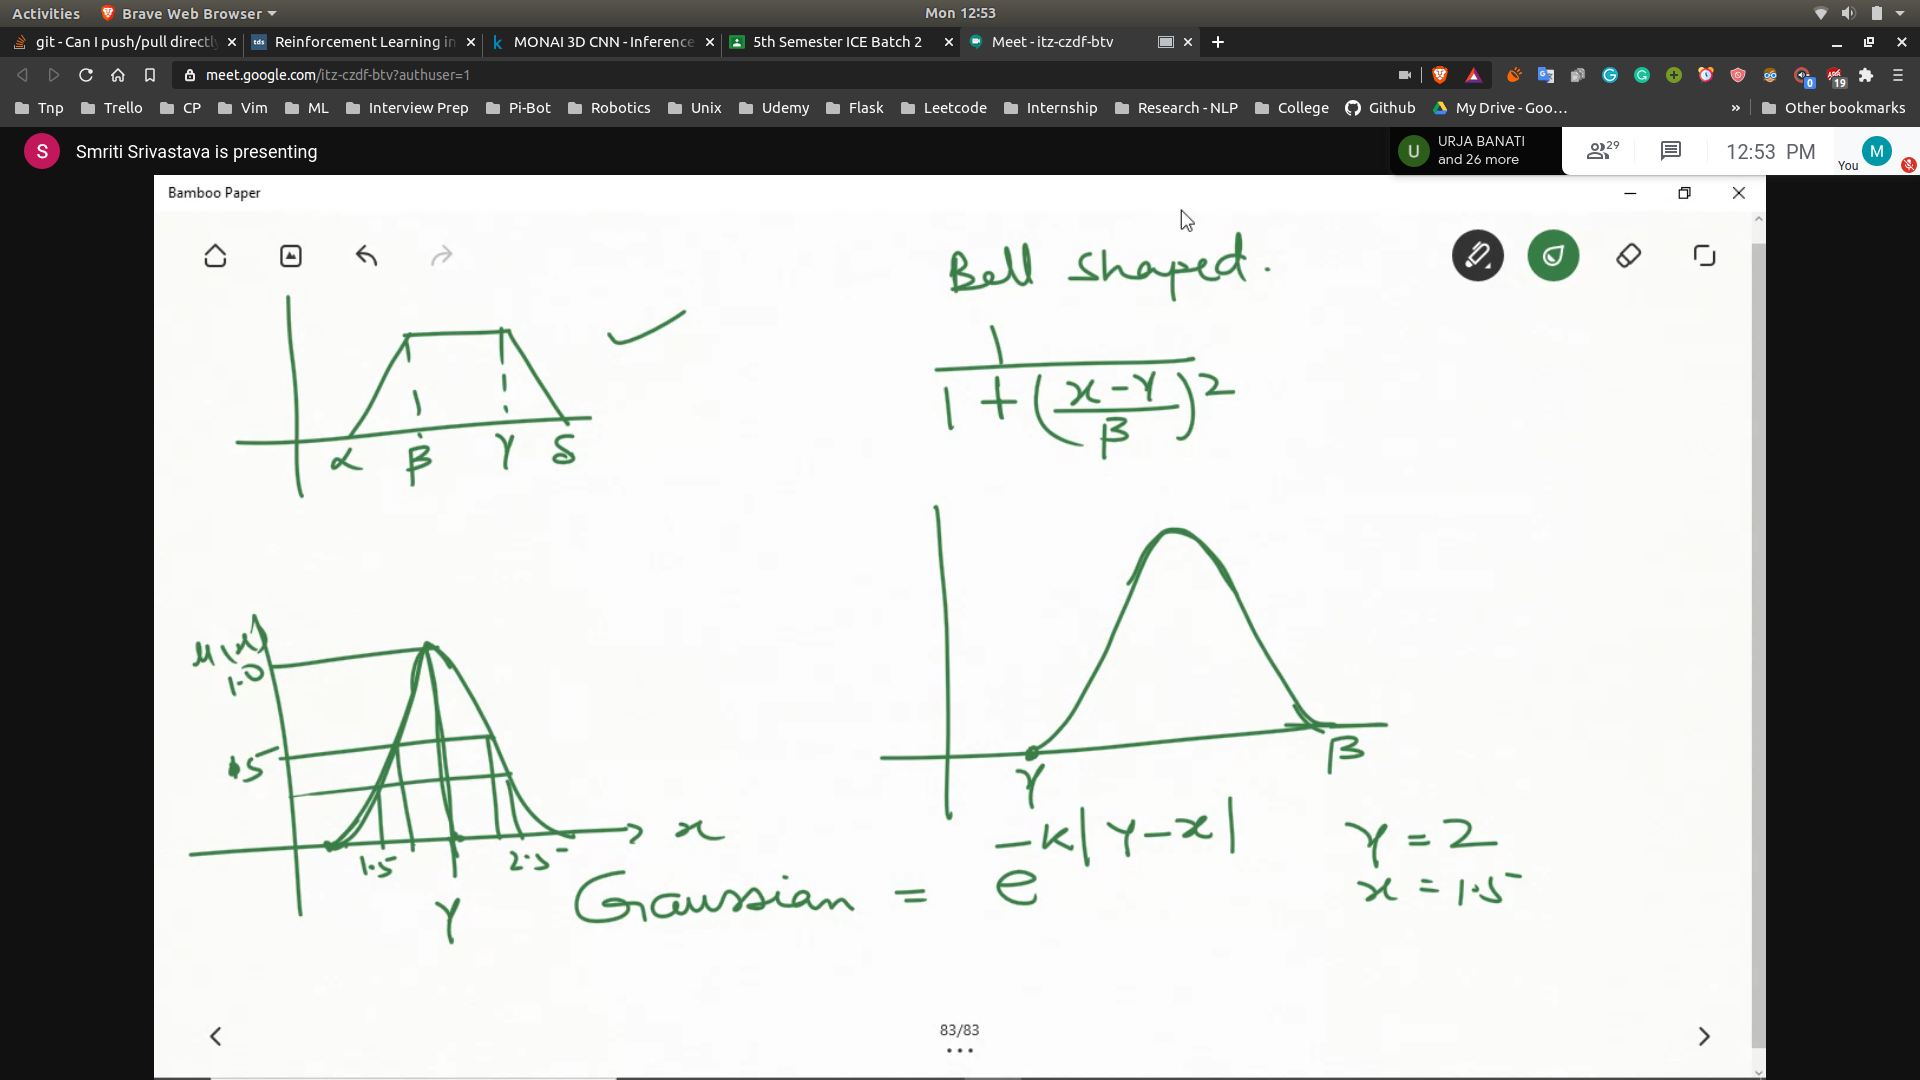 Activities Brave Web Browser Mon 12:53
git - Can I push/pull directly Reinforcement Learning in MONAI 3D CNN - Inference 5th Semester ICE Batch 2 Meet - itz-czdf-btv
meet.google.com/itz-czdf-btv?authuser=1
0 19
Tnp Trello CP Vim ML Interview Prep Pi-Bot Robotics Unix Udemy Flask Leetcode Internship Research - NLP College Github My Drive - Goo... » Other bookmarks
S Smriti Srivastava is presenting
U URJA BANATI
and 26 more
29 12:53 PM You M
Bamboo Paper
Bell shaped.
1
1 + (x-γ
β)2
α β γ δ
μ(x)
1.0
.5
1.5 γ 2.5 x
γ β
Gaussian = e -k|γ-x|
γ = 2
x = 1.5
83/83